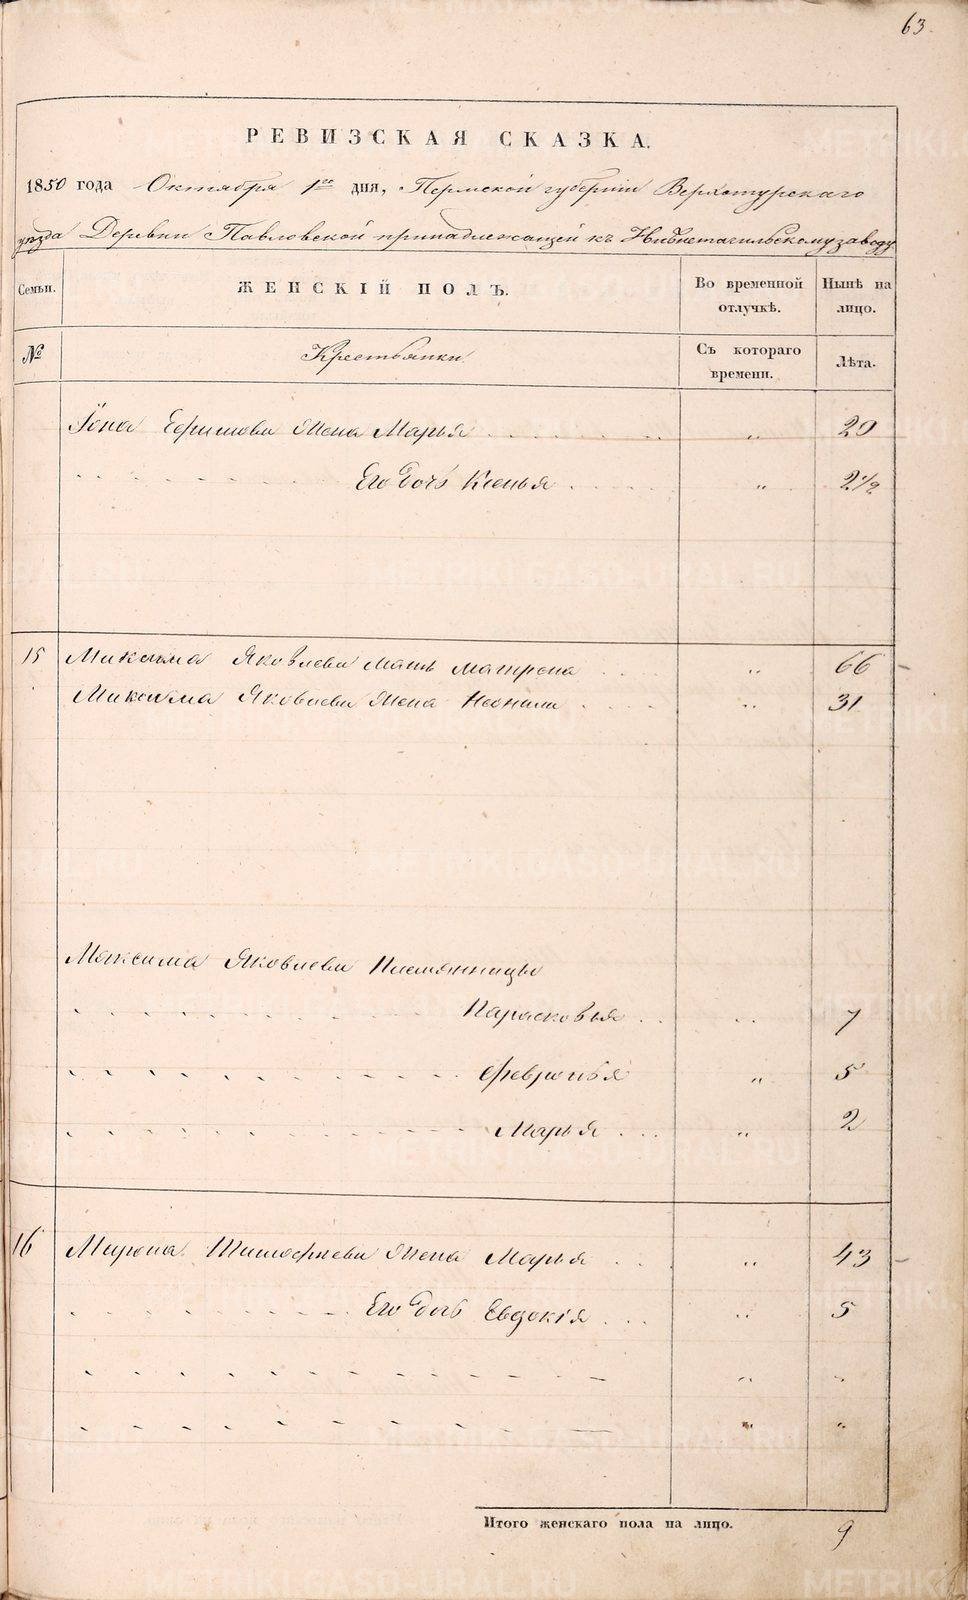 63.
РЕВИЗСКАЯ СКАЗКА.
1850 года Октября 1го дня, Пермской губернии Верхотурскаго
уезда Деревни Павловской принадлежащей къ Нижнетагильскому заводу
Семьи. ЖЕНСКІЙ ПОЛЪ. Во временной отлучкѣ. Нынѣ на лицо.
№ Крестьянки. Съ котораго времени. Лѣта.
Іона Ефимова жена Марья 20
Его дочь Ксенья 2 1/2
15 Максима Яковлева мать Матрена 66
Максима Яковлева жена Неонила 31
Максима Яковлева племянницы
Парасковья 7
Февронья 5
Марья 2
16 Мирона Тимофеева жена Марья 43
Его дочь Евдокія 5
Итого женскаго пола на лицо. 9
METRIKI.GASO-URAL.RU